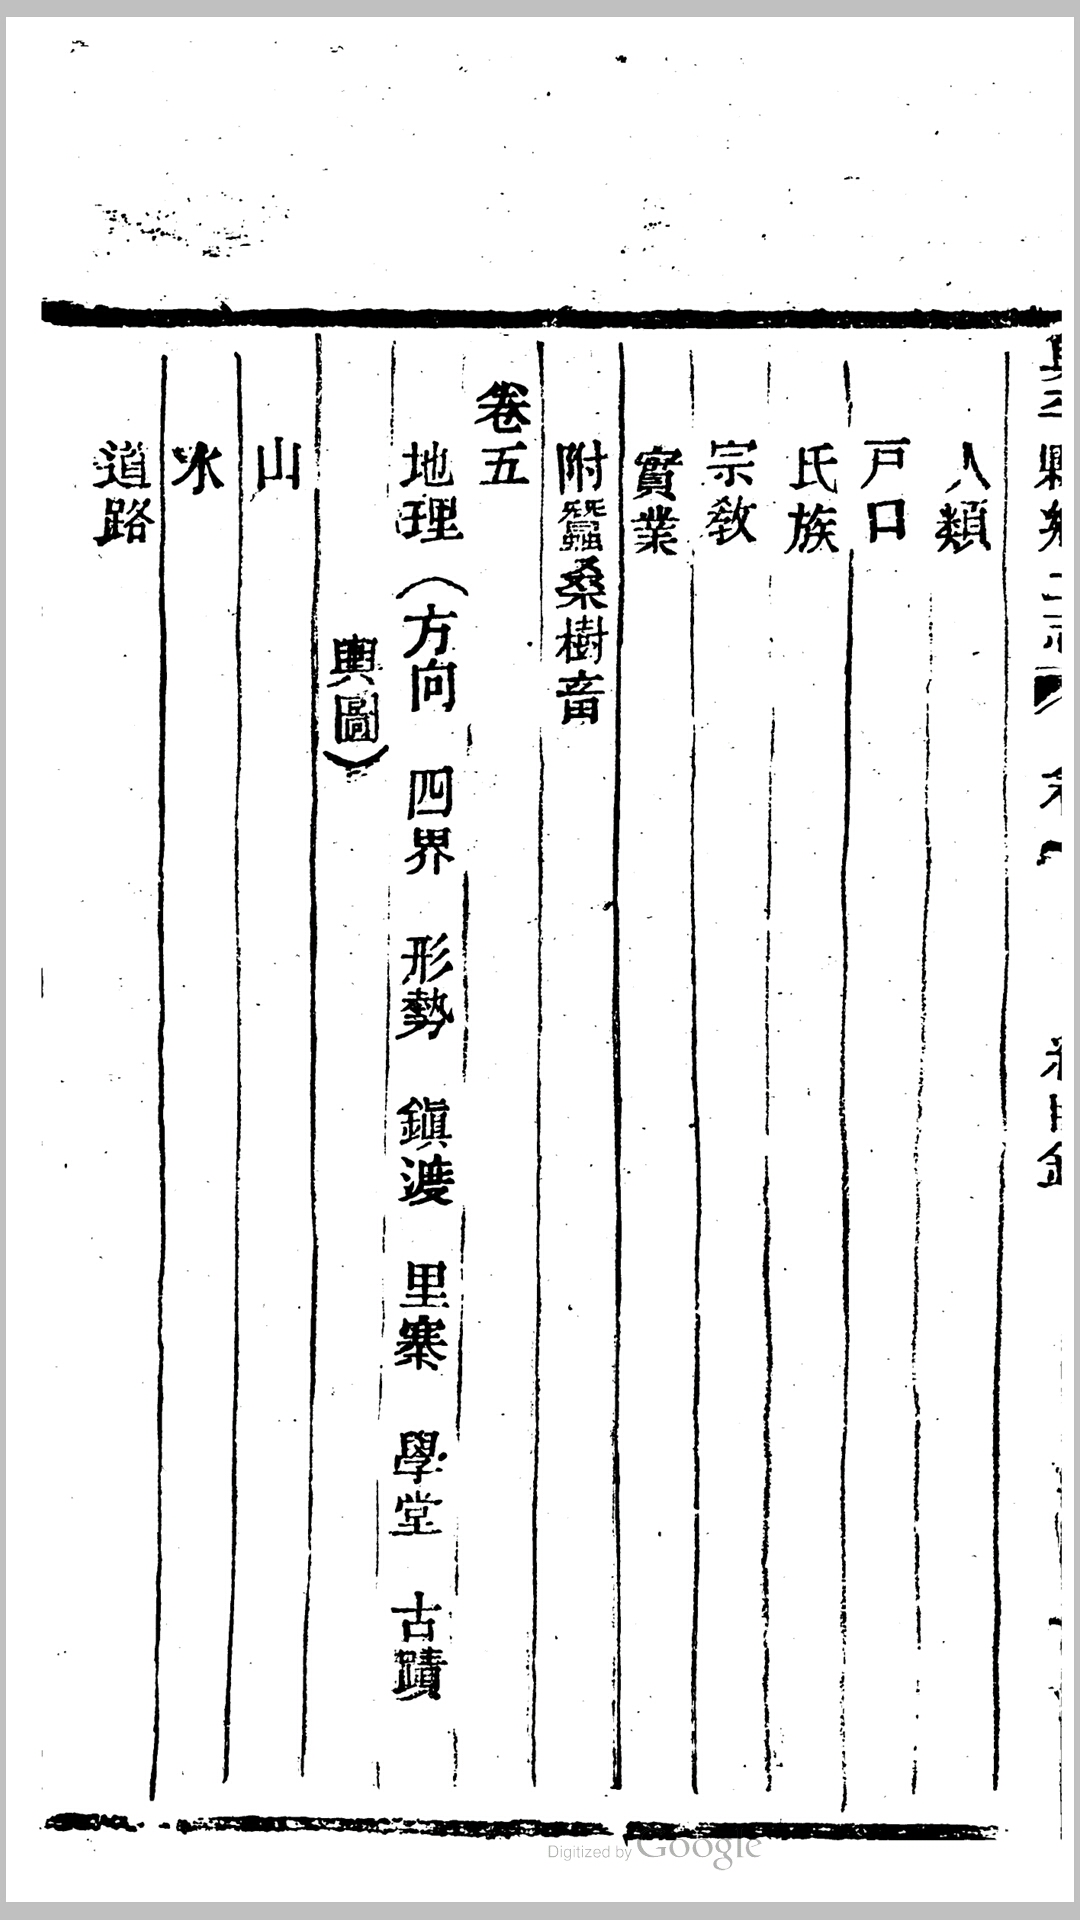 人類
戸口
氏族
宗教
實業
附蠶桑樹畜
卷五
地理（方向　四界　形勢　鎭渡　里寨　學堂　古蹟
輿圖）
山
水
道路
Digitized by Google